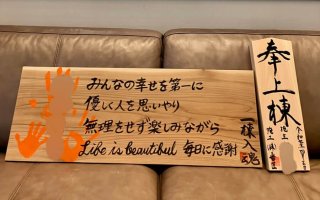 みんなの幸せを第一に
優しく人を思いやり
無理をせず楽しみながら
Life is beautiful 毎日に感謝
一棟入魂
奉上棟